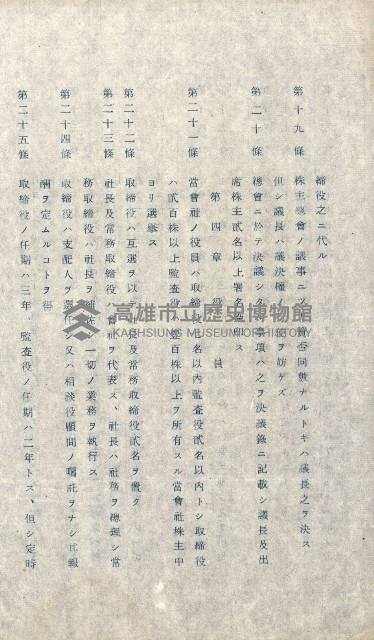 締役之ニ代ル
第十九條 株主總會ノ議事ニシテ賛否同數ナルトキハ議長之ヲ決ス
但シ議長ハ議決權ノ行使ヲ妨ゲズ
第二十條 總會ニ於テ決議シタル事項ハ之ヲ決議錄ニ記載シ議長及出
席株主貳名以上署名捺印ス
第四章 役員
第二十一條 當會社ノ役員ハ取締役七名以內監査役貳名以內トシ取締役
ハ貳百株以上監査役ハ壹百株以上ヲ所有スル當會社株主中
ヨリ選擧ス
第二十二條 取締役ハ互選ヲ以テ社長及常務取締役貳名ヲ置ク
第二十三條 社長及常務取締役ハ會社ヲ代表ス、社長ハ社務ヲ總理シ常
務取締役ハ社長ヲ補佐シ一切ノ業務ヲ執行ス
第二十四條 取締役ハ支配人ヲ選任シ又ハ相談役顧問ノ囑託ヲナシ其報
酬ヲ定ムルコトヲ得
第二十五條 取締役ノ任期ハ三年、監査役ノ任期ハ二年トス、但シ定時
高雄市立歷史博物館
KAOHSIUNG MUSEUM OF HISTORY